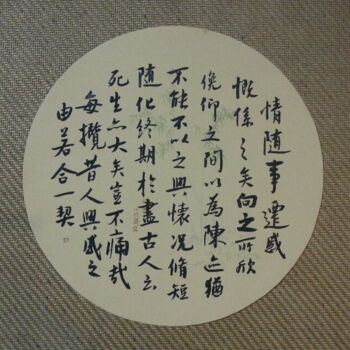 情随事遷感
慨係之矣向之所欣
俛仰之間以為陳迹猶
不能不以之興懷況脩短
随化終期於盡古人云
死生亦大矣豈不痛哉
每攬昔人興感之
由若合一契